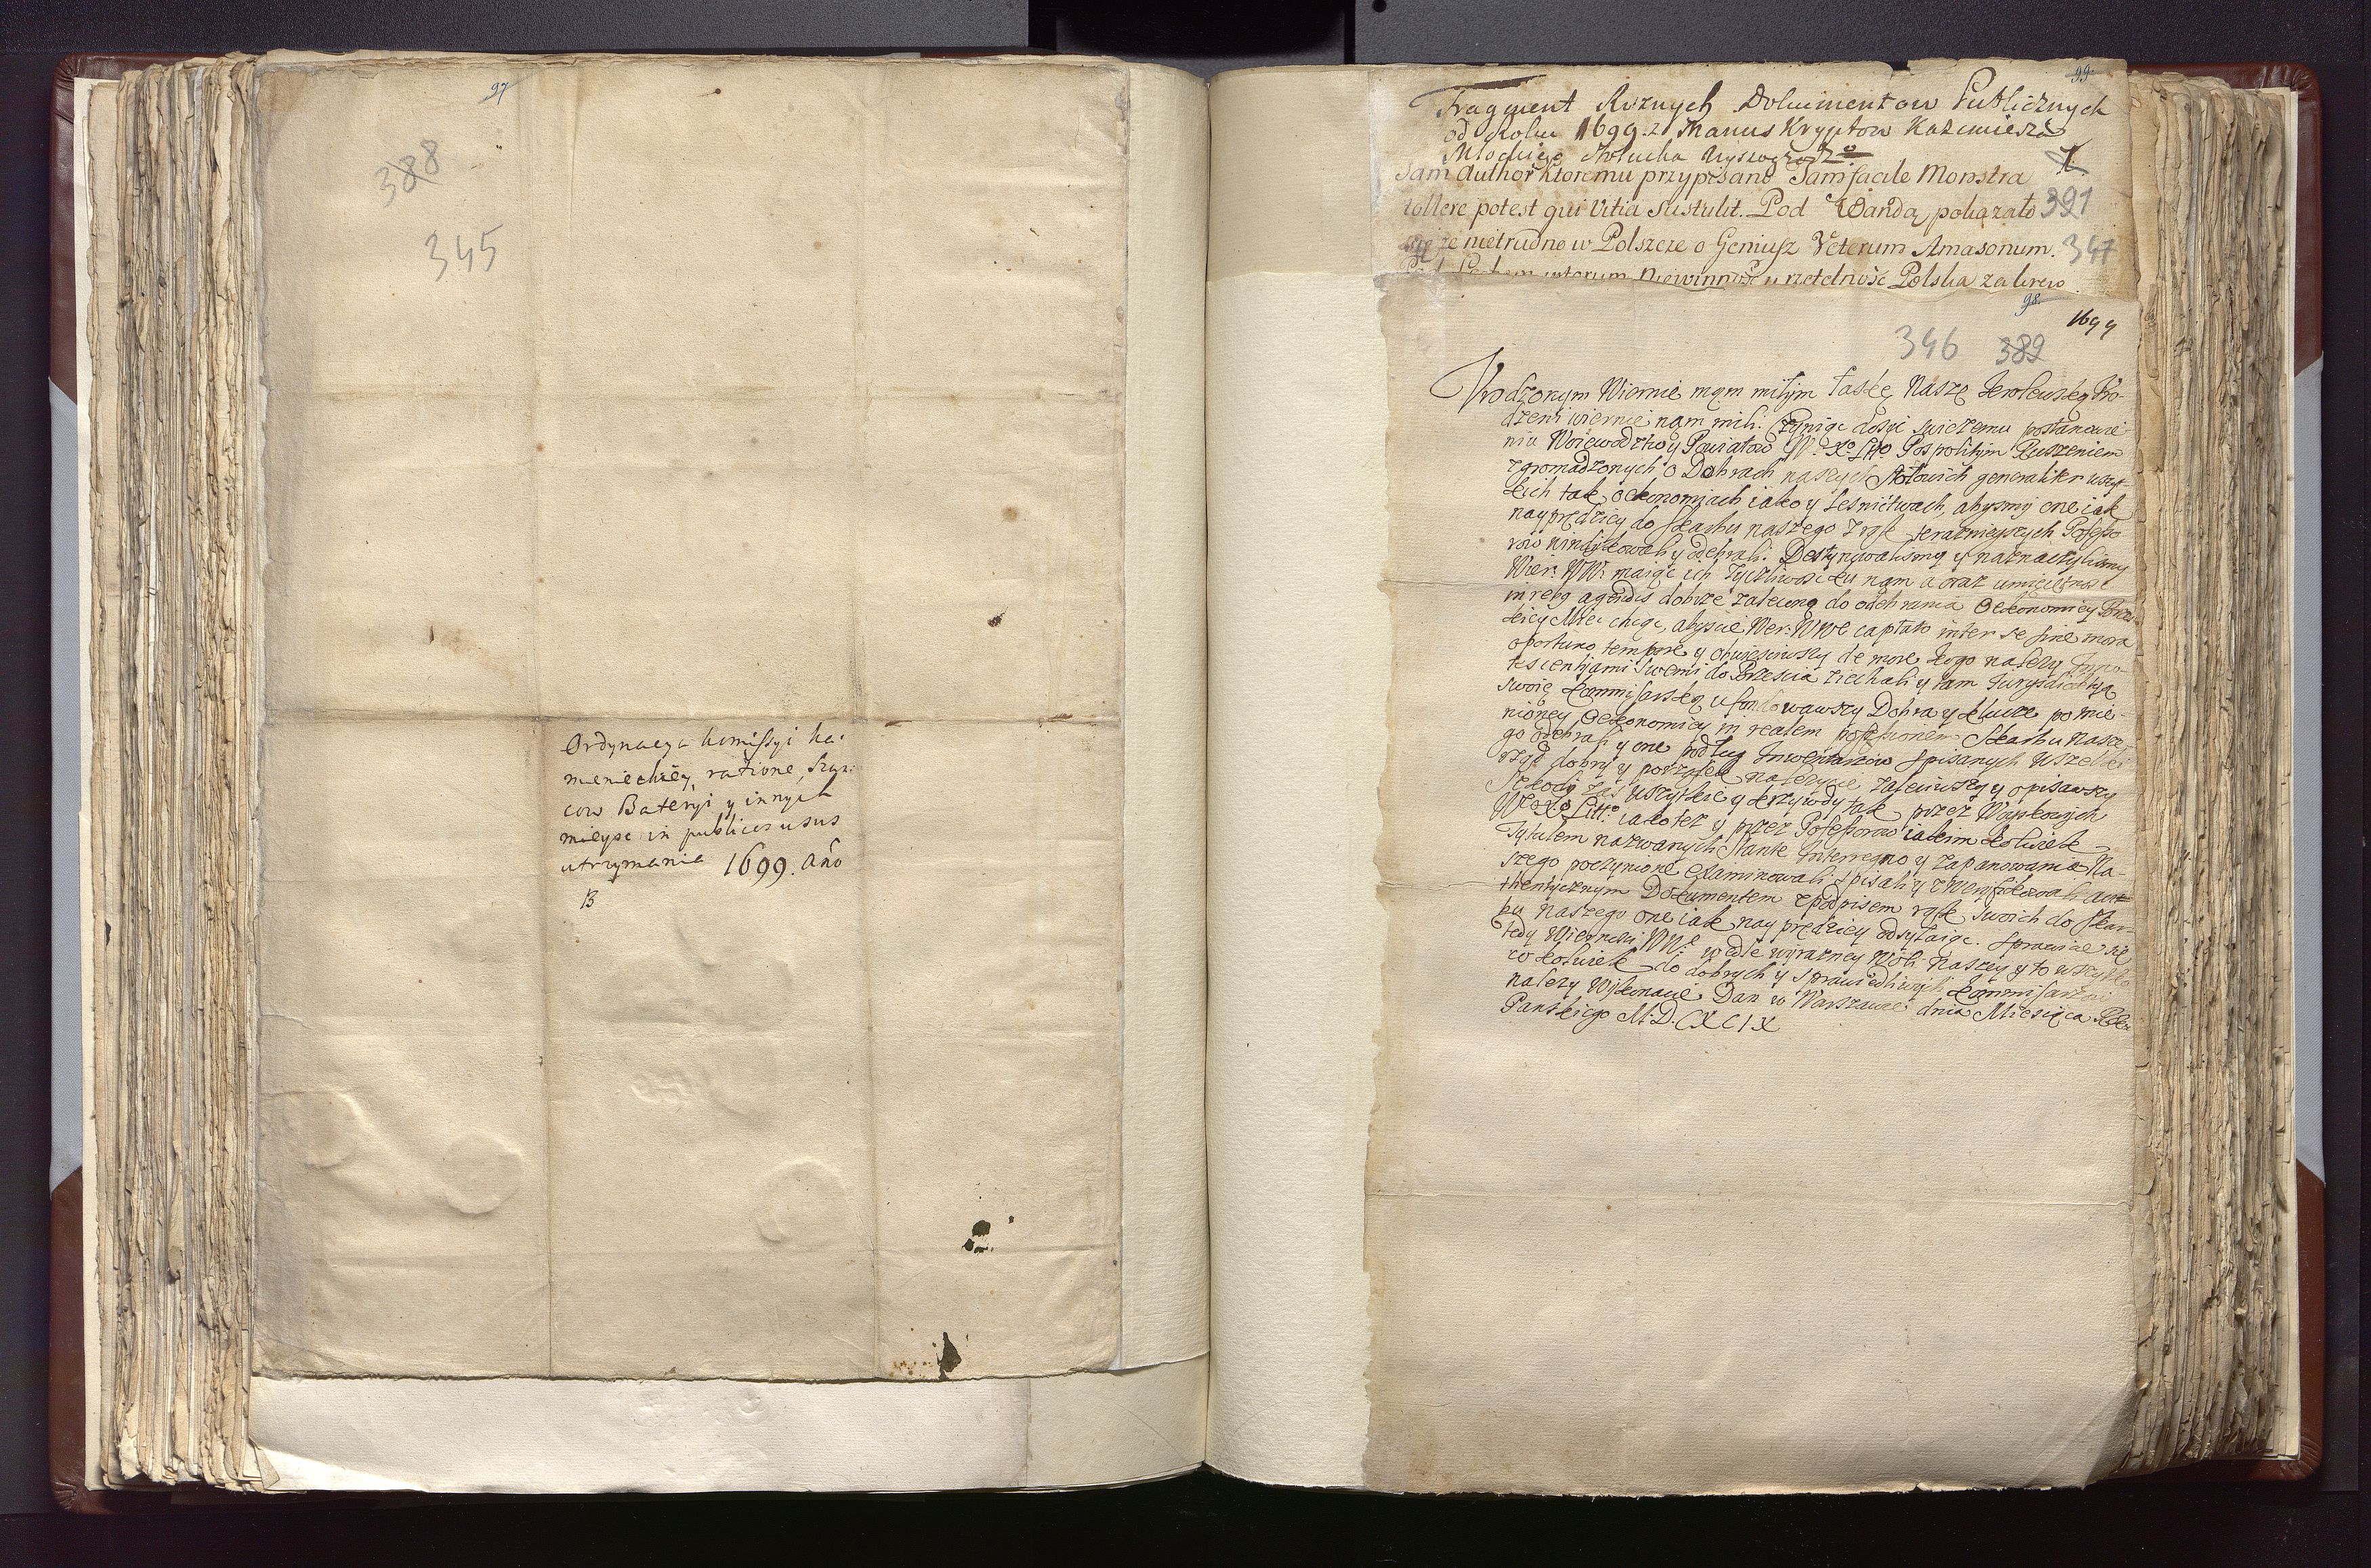 97
388
345
Ordynacya komissyi ka:
mienieckiey, ratione, Szan:
cow Bateryi y innych
mieysc in publicos usus
utrzymania 1699. Año
B
99
Fragment Roznych Dokumentow Publicznych
od Roku 1699. z Manus Kryptow Kazimierza
Młockiego
1
Sam Author ktoremu przypisano Jam facile Monstra
391
tollere potest qui Vitia sustulit. Pod Wandą pokazało
się że nietrudno w Polszcze o Geniusz Veterum Amasonum.
347
niewinność y rzetelność Polska za krew
98.
1699
346 389
Vrodzonym Wiernie nąm miłym łaskę Naszę Krolewską Vro-
dzeni wiernie nąm mili. Czyniąc dosyć swiezemu postanowie-
niu Woiewodztw y Powiatow W. X. Litto Pospolitym Ruszeniem
zgromadzonych o Dobrach naszych Stołowich generaliter wszyt-
kich tak oekonomiach iako y Lesnictwach, abysmy one iak
nayprędzey do skarbu naszego z rąk teraznieyszych Possesso
row windykowali y odebrali. Destynowalismy y naznaczylismy
Wier: WW: maiąc ich życzliwosc ku nąm a oraz umieiętnosc
in rebg agendis dobrze zaleconą do odebrania Oekonomiey Brzes
kiey Miec chcąc, abyscie Wier: WWe captato inter se sine mora
oportuno tempore y obwiesciwszy de more kogo nalezy Inno
tescentyami swemi do Brzescia ziechali y tam Jurysdictyą
swoię kommissarską ufundowawszy Dobra y klucze pomie-
nioney Oekonomiey in realem possessionem Skarbu Nasze,
go odebrali y one podług Inwentarzow spisanych wszelki
rząd dobry y porządek nalezycie zaleciwszy y opisawszy
Szkody zas wszytkie y krzywdy tak przez Woyskowych
W. X. Litto: iako tez y przez Possessorow iakim kolwiek
Tytułem nazwanych Stante Interregno y zapanowania Na-
szego poczynione examinowali spisali y zweryfikowali aut
thentycznym Dokumentem z podpisem rąk swoich do skar-
bu naszego one iak nayprędzey odsyłaiąc. sprawiąc się
tedy Wiernosci WWe wedle wyrazney woli Naszey y to wszytko
cokolwiek do dobrych y sprawiedliwych kommissarzow
nalezy wykonacie. Dan w Warszawie dnia Miesiąca Roku
Panskiego M.D.CXCIX